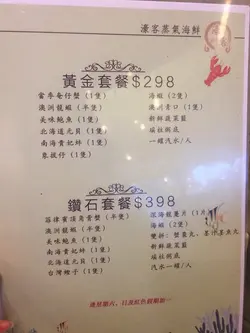 濠客蒸氣海鮮
黃金套餐$298
當季奄仔蟹（1隻）
澳洲龍蝦（半隻）
美味鮑魚（1隻）
北海道元貝（1隻）
南海貴妃蚌（1隻）
象拔仔（1隻）
海蝦（2隻）
澳洲青口（1隻）
新鮮蔬菜籃
瑞粒粥底
一人一汽水/檬
鑽石套餐$398
菲律賓油角黃蟹（半隻）
澳洲龍蝦（半隻）
美味鮑魚（1隻）
南海貴妃蚌（1隻）
北海道元貝（1隻）
台灣椰子（1隻）
深海銀鱈片（1片）
海蝦（2隻）
雙拼：蟹黃丸，墨魚丸
新鮮蔬菜籃
瑞粒粥底
汽水一罐/人